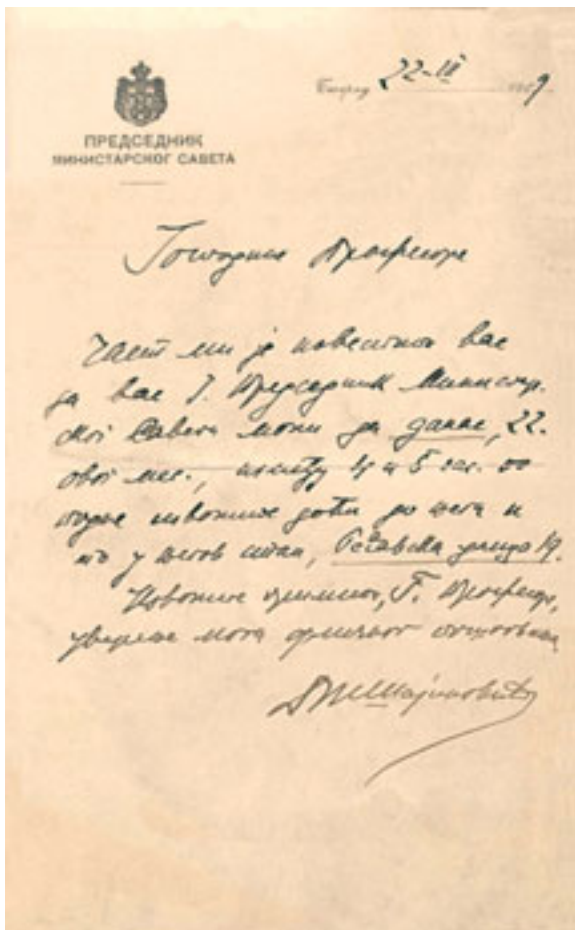 Београд 22-III 19 9
ПРЕДСЕДНИК
МИНИСТАРСКОГ САВЕТА
Господине Професоре
Част ми је известити вас
да вас Г. Председник Министар.
ског Савета моли да данас, 22.
овог мес., између 4 и 5 час. по
подне изволите доћи до њега и
то у његов стан, Ресавска улица 19.
Изволите примити, Г. Професоре,
уверење мога одличног поштовања